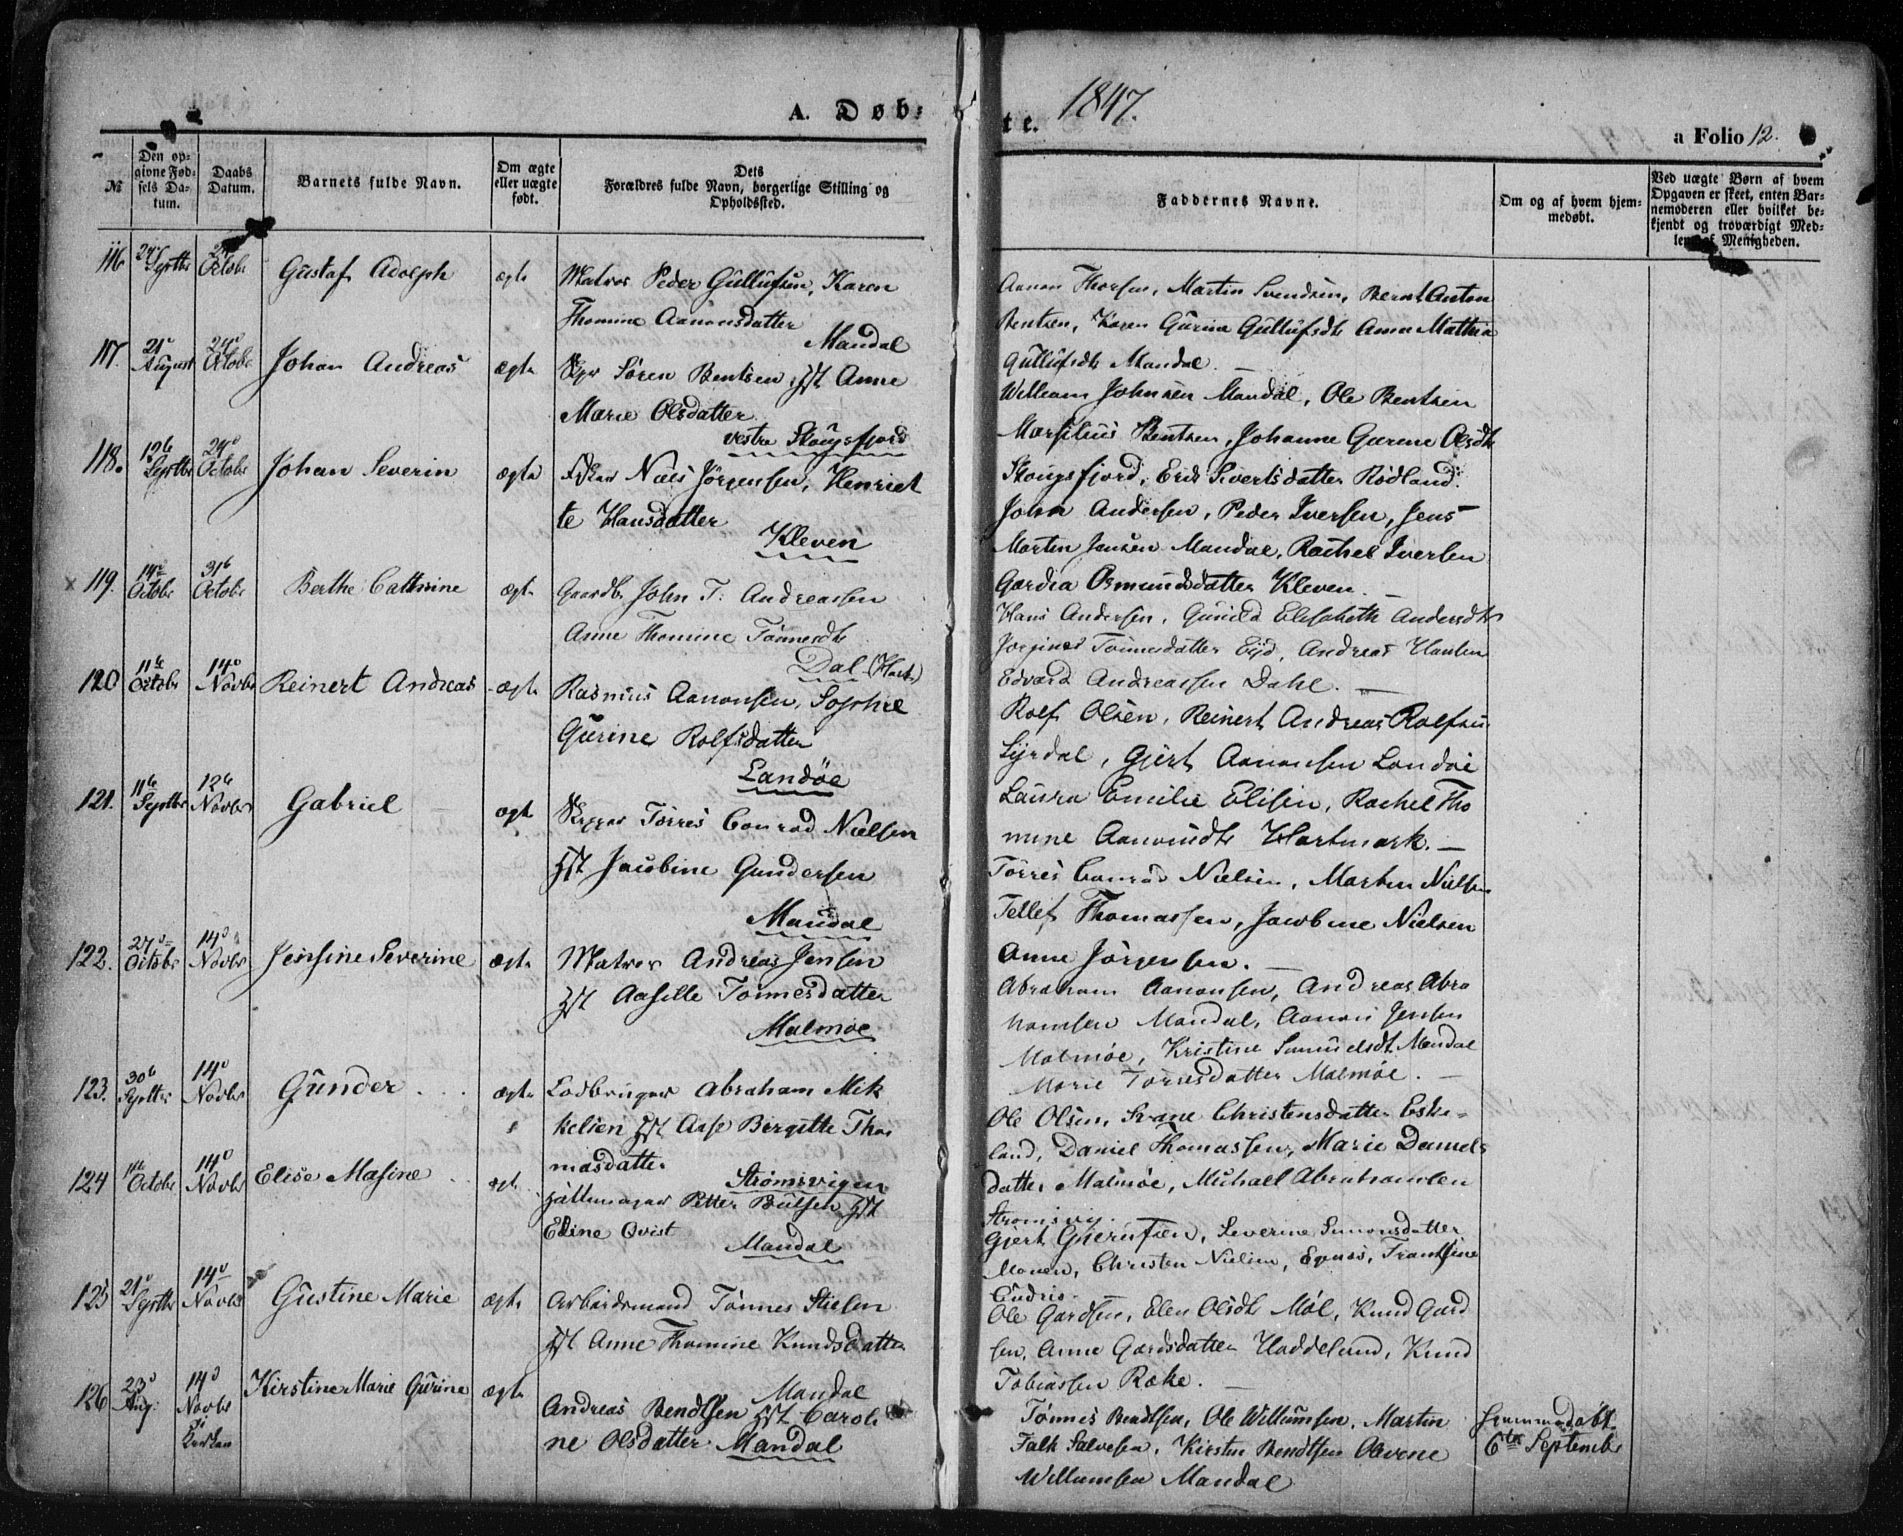 A. Døb-
te. 1847.
a Folio 12.
№
Den op-
givne Fød-
sels Da-
tum.
Daabs
Datum.
Barnets fulde Navn.
Om ægte
eller uægte
født.
Dets
Forældres fulde Navn, borgerlige Stilling og
Opholdssted.
Faddernes Navne.
Om og af hvem hjem-
medøbt.
Ved uægte Børn af hvem
Opgaven er skeet, enten Bar-
nemoderen eller hvilket be-
kjendt og troværdigt Med-
lem af Menigheden.
116 24 Septbr 24 Octobr Gustaf Adolph ægte Matros Peder Gullufsen, Karen
Thomine Aanonsdatter
Mandal
Aanon Thorsen, Martin Svendsen, Bernt Anton
Bentsen, Karen Gurine Gullufsdtr Anne Mathia
Gullufsdtr Mandal.
117. 21 August 24 Octobr Johan Andreas ægte Søren Bentsen Hst Anne
Marie Olsdatter
vestre Skougsfjord
William Johnsen Mandal, Ole Bentsen
Marsilius Bentsen, Johanne Gurene Olsdtr
Skougsfjord, Sivertsdatter Rødland.
118. 19 Septbr 24 Octobr Johan Severin ægte Niels Jørgensen, Henriet
te Hansdatter
Kleven
John Andersen, Peder Iversen, Jens
Martin Jensen Mandal, Rachel Iversen
Osmundsdatter Kleven.
119. 14 Octobr 31 Octobr Berthe Cathrine ægte Gaardb. John T. Andreassen
Anne Thomine Tønnesdtr
Dal (Hart.)
Hans Andersen, Gunild Elisabeth Andersdtr
Jorgine Tønnesdatter Eijd, Andreas Hansen
Edvard Andreassen Dahl.
120 11 Octobr 14 Novbr Reinert Andreas ægte Rasmus Aanonsen, Sophie
Gurine Rolfsdatter
Landøe
Rolf Olsen, Reinert Andreas Rolfsen
Syrdal, Gjert Aanonsen Landøe
Laura Emilie Elisen, Rachel Tho
mine Hartmark.
121. 11 Septbr 12 Novbr Gabriel ægte Skipper Tørres Conrad Nielsen
Hst Jacobine Gundersen
Mandal
Tørres Conrad Nielsen, Marten Nielsen
Tellef Thomassen, Jacobine Nielsen
Anne Jørgensen.
122. 27 Octobr 14 Novbr Jensine Severine ægte Matros Andreas Jensen
Hst Aasille Tønnesdatter
Malmøe
Abraham Aanonsen, Andreas Abra
hamsen Mandal, Aanon Jensen
Malmøe, Kristine Samuelsdt. Mandal
Marie Tørresdatter Malmøe.
123. 30 Septbr 14 Novbr Gunder ægte Lodbruger Abraham Mik
kelsen Hst Aase Birgitte Tho
masdatter
Strømsvigen
Ole Olsen, Svane Christensdatter Eske-
land, Daniel Thomassen, Marie Daniels
datter Malmøe, Michael Abrahamsen
Strømsvig.
124 11 Octobr 14 Novbr Elise Masine ægte Petter Hst
Edine Qvist
Mandal
Gjert, Severine Simonsdatter
Monen, Christen Nielsen,
125 21 Septbr 14 Novbr Gustine Marie ægte Arbeidsmand Tønnes
Hst Anne Thomine Knudsdatter
Mandal
Ole Gardsen, Elen Olsdtr Møl, Knud Gard
sen, Anne Gardsdatter Haddeland, Knud
Tobiassen Røke.
126 23 Aug. 14 Novbr i Kirken Kirstine Marie Gurine ægte Andreas Bendtsen Hst Caroli
ne Olsdatter Mandal
Tønnes Bendtsen, Ole Willumsen, Martin
Falk Salvesen, Kirsten Bendtsen Olevine
Willumsen Mandal
hjemmedøbt
6te September